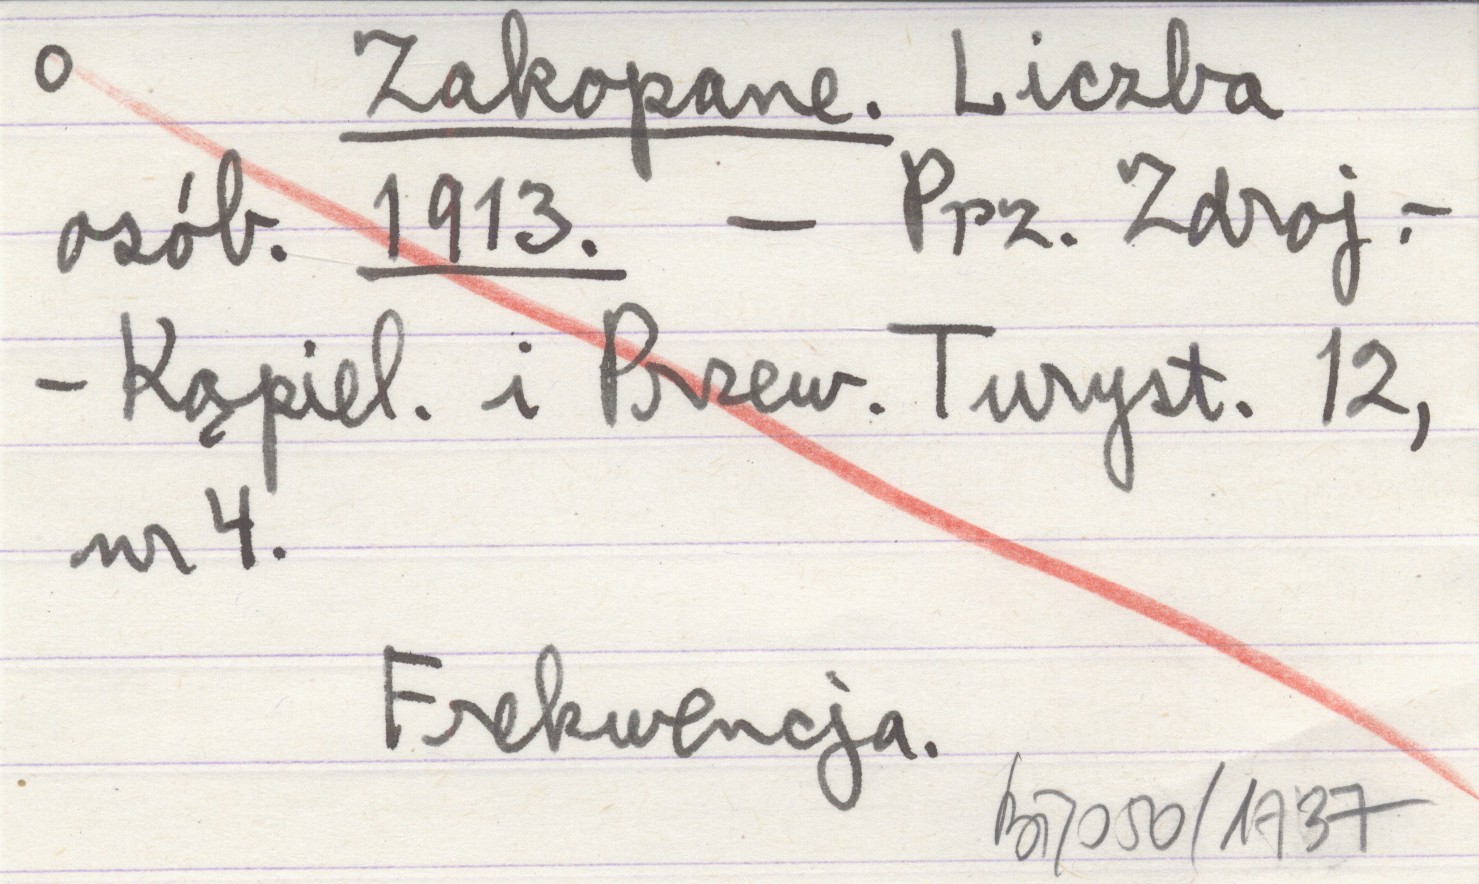 o Zakopane. Liczba
osób. 1913. — Ppz. Zdroj.-
- Kąpiel. i Przew. Turyst. 12,
nr 4.
Frekwencja.